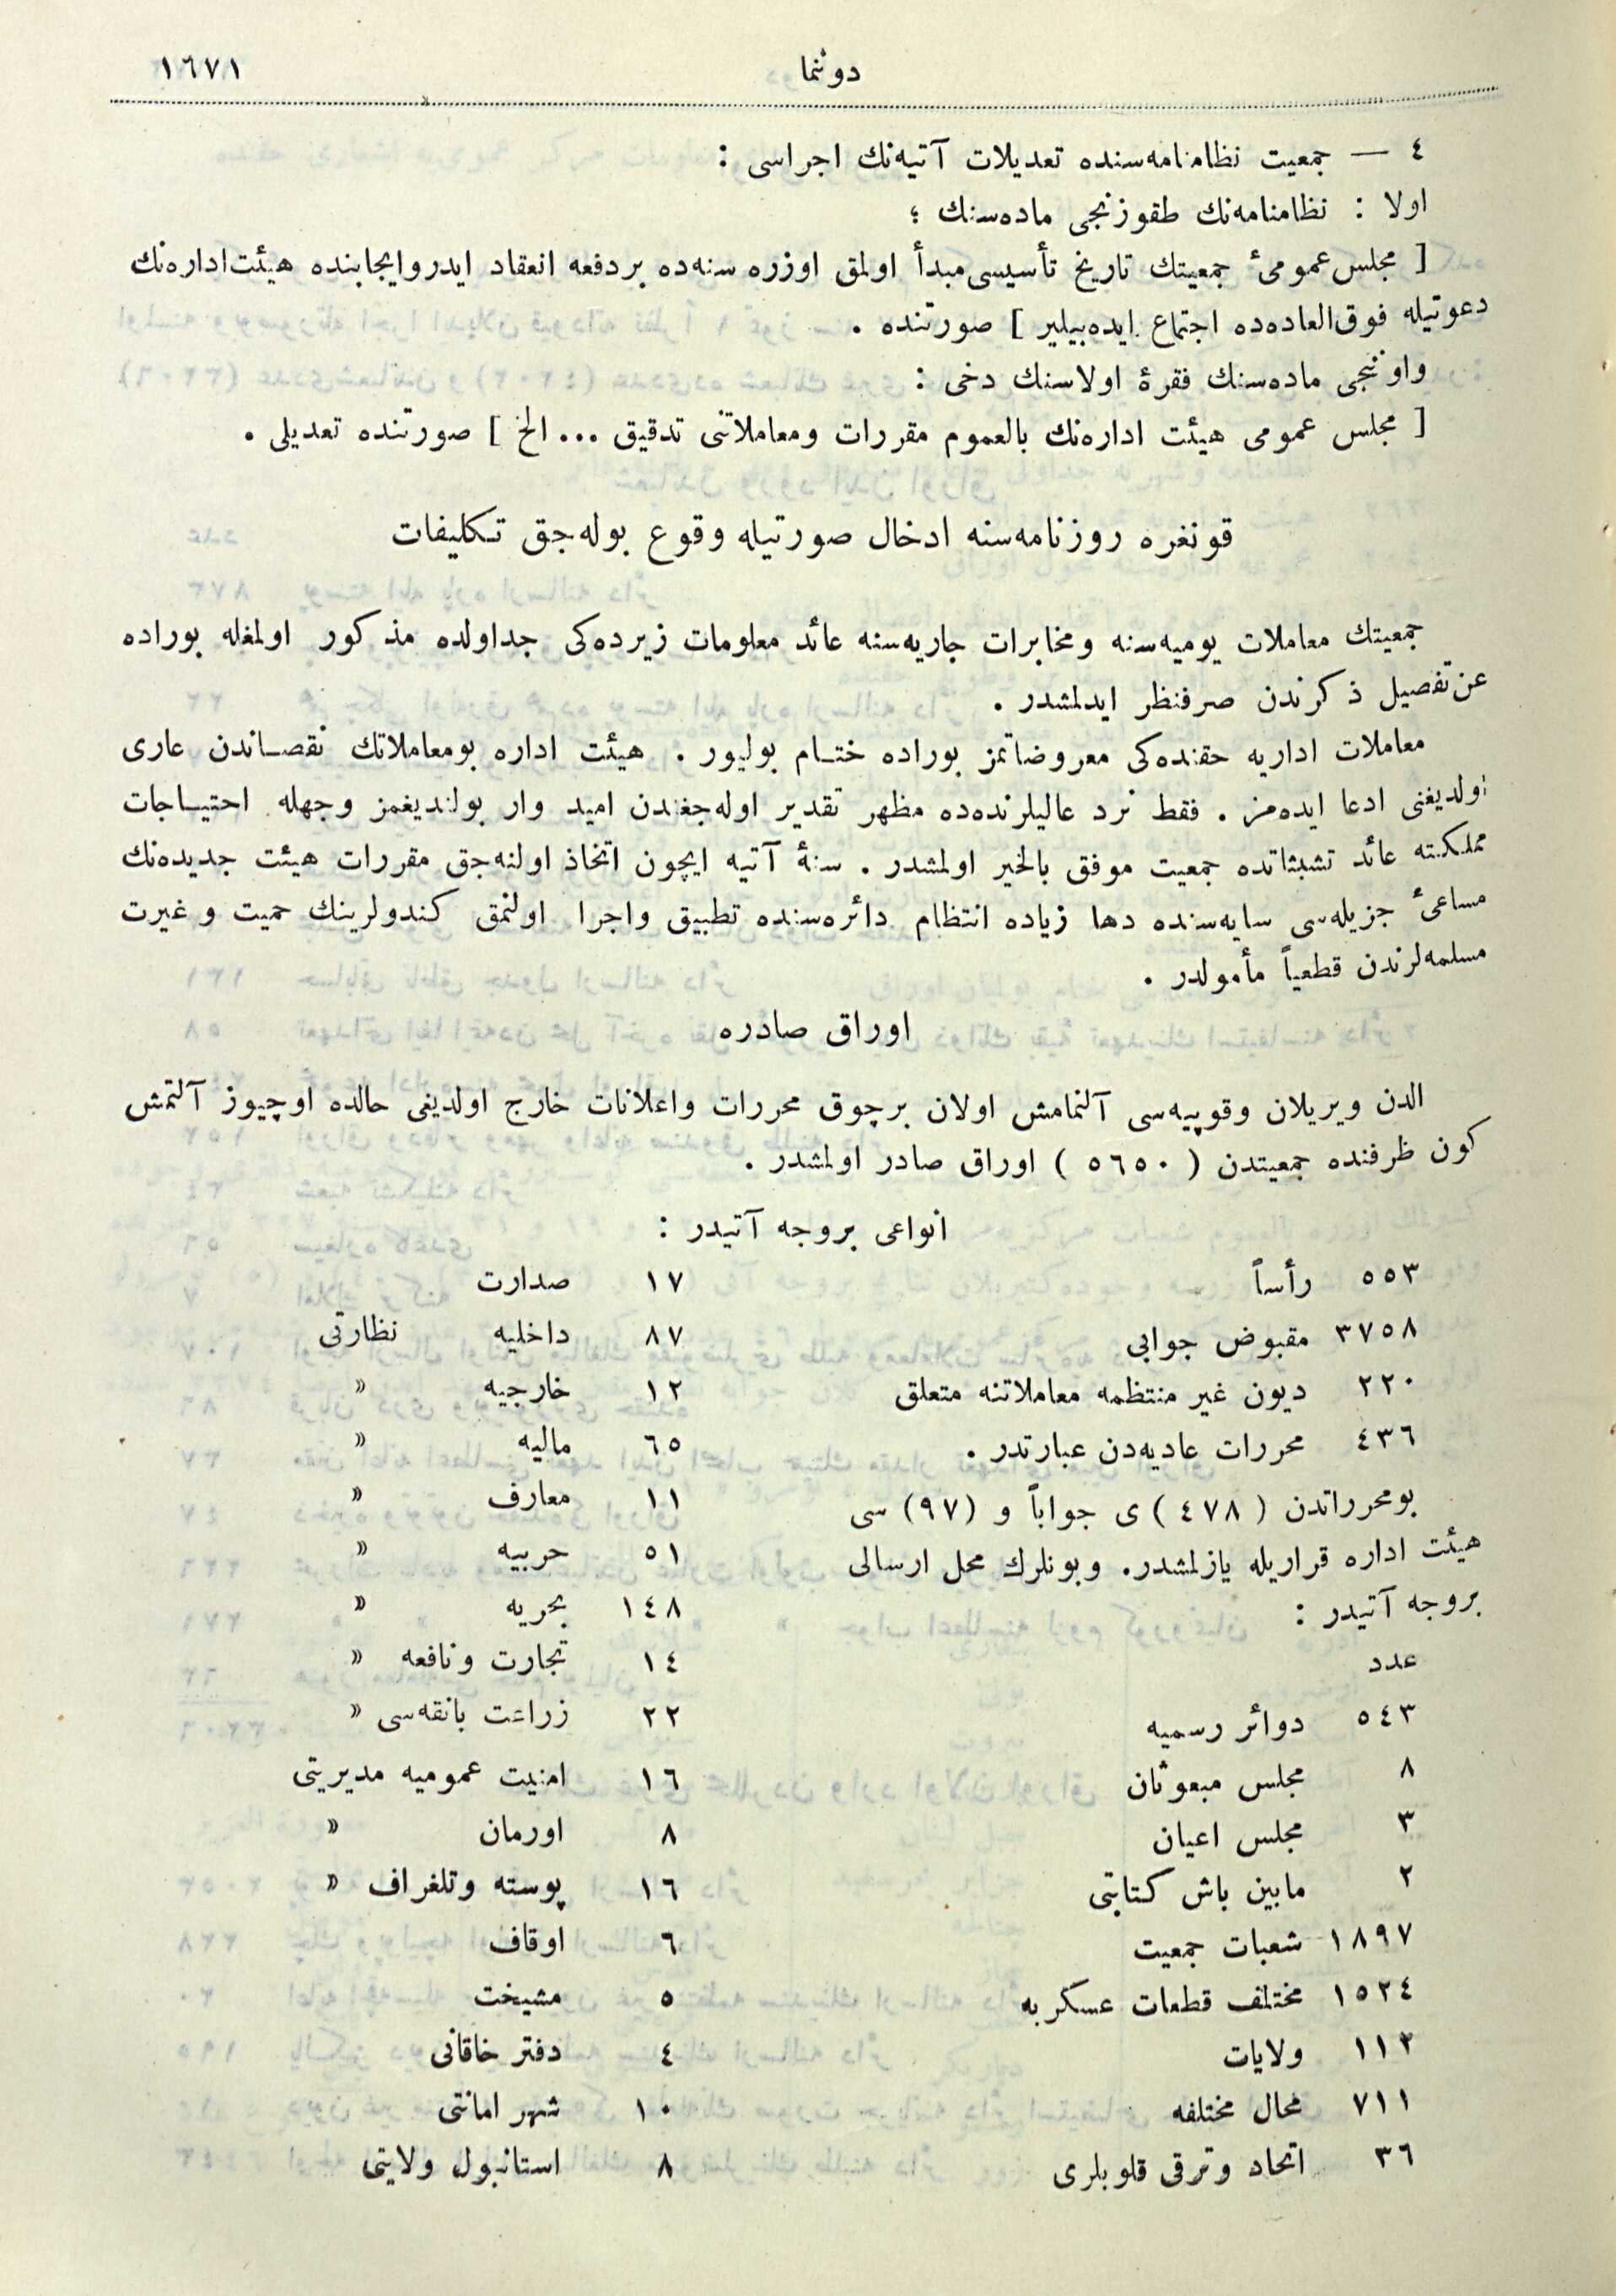 دوننما
١٦٧١
٤ — جمعیت نظامنامه‌سنده تعدیلات آتیه‌نك اجراسی :
اولا : نظامنامه‌نك طقوزنجی ماده‌سنك ؛
[ مجلس عمومیٔ جمعیتك تاریخ تأسیسی مبدأ اولمق اوزره سنه‌ده بردفعه انعقاد ایدر وایجابنده هیئت اداره‌نك
دعوتیله فوق‌العاده‌ده اجتماع ایده‌بیلیر ] صورتنده .
واوننجی ماده‌سنك فقرۀ اولاسنك دخی :
[ مجلس عمومی هیئت اداره‌نك بالعموم مقررات ومعاملاتنی تدقیق ... الخ ] صورتنده تعدیلی .
قونغره روزنامه‌سنه ادخال صورتیله وقوع بوله‌جق تكلیفات
جمعیتك معاملات یومیه‌سنه ومخابرات جاریه‌سنه عائد معلومات زیرده‌كی جداولده مذكور اولمغله بوراده
عن‌تفصیل ذكرندن صرفنظر ایدلمشدر .
معاملات اداریه حقنده‌كی معروضاتمز بوراده ختـام بولیور . هیئت اداره بومعاملاتك نقصـاندن عاری
اولدیغنی ادعا ایده‌مز . فقط نزد عالیلرنده‌ده مظهر تقدیر اوله‌جغندن امید وار بولندیغمز وجهله احتیـاجات
مملكته عائد تشبثاتده جمعیت موفق بالخیر اولمشدر . سنۀ آتیه ایچون اتخاذ اولنه‌جق مقررات هیئت جدیده‌نك
مساعیٔ جزیله‌سی سایه‌سنده دها زیاده انتظام دائره‌سنده تطبیق واجرا اولنمق كندولرینك حمیت وغیرت
مسلمه‌لرندن قطعیاً مأمولدر .
اوراق صادره
الدن ویریلان وقوپیه‌سی آلنمامش اولان برچوق محررات واعلانات خارج اولدیغی حالده اوچیوز آلتمش
كون ظرفنده جمعیتدن ( ٥٦٥٠ ) اوراق صادر اولمشدر .
انواعی بروجه آتیدر :
٥٥٣ رأساً
٣٧٥٨ مقبوض جوابی
٢٢٠ دیون غیر منتظمه معاملاتنه متعلق
٤٣٦ محررات عادیه‌دن عبارتدر .
بومحرراتدن ( ٤٧٨ ) ی جواباً و (٩٧) سی
هیئت اداره قراریله یازلمشدر. وبونلرك محل ارسالی
بروجه آتیدر :
عدد
٥٤٣ دوائر رسمیه
٨ مجلس مبعوثان
٣ مجلس اعیان
٢ مابین باش كتابتی
١٨٩٧ شعبات جمعیت
١٥٢٤ مختلف قطعات عسكریه
١١٣ ولایات
٧١١ محال مختلفه
٣٦ اتحاد وترقی قلوبلری
١٧ صدارت
٨٧ داخلیه نظارتی
١٢ خارجیه »
٦٥ مالیه »
١١ معارف »
٥١ حربیه »
١٤٨ بحریه »
١٤ تجارت ونافعه »
٢٢ زراعت بانقه‌سی »
١٦ امنیت عمومیه مدیریتی
٨ اورمان »
١٦ پوسته وتلغراف »
٦ اوقاف
٥ مشیخت
٤ دفتر خاقانی
١٠ شهر امانتی
٨ استانبول ولایتی